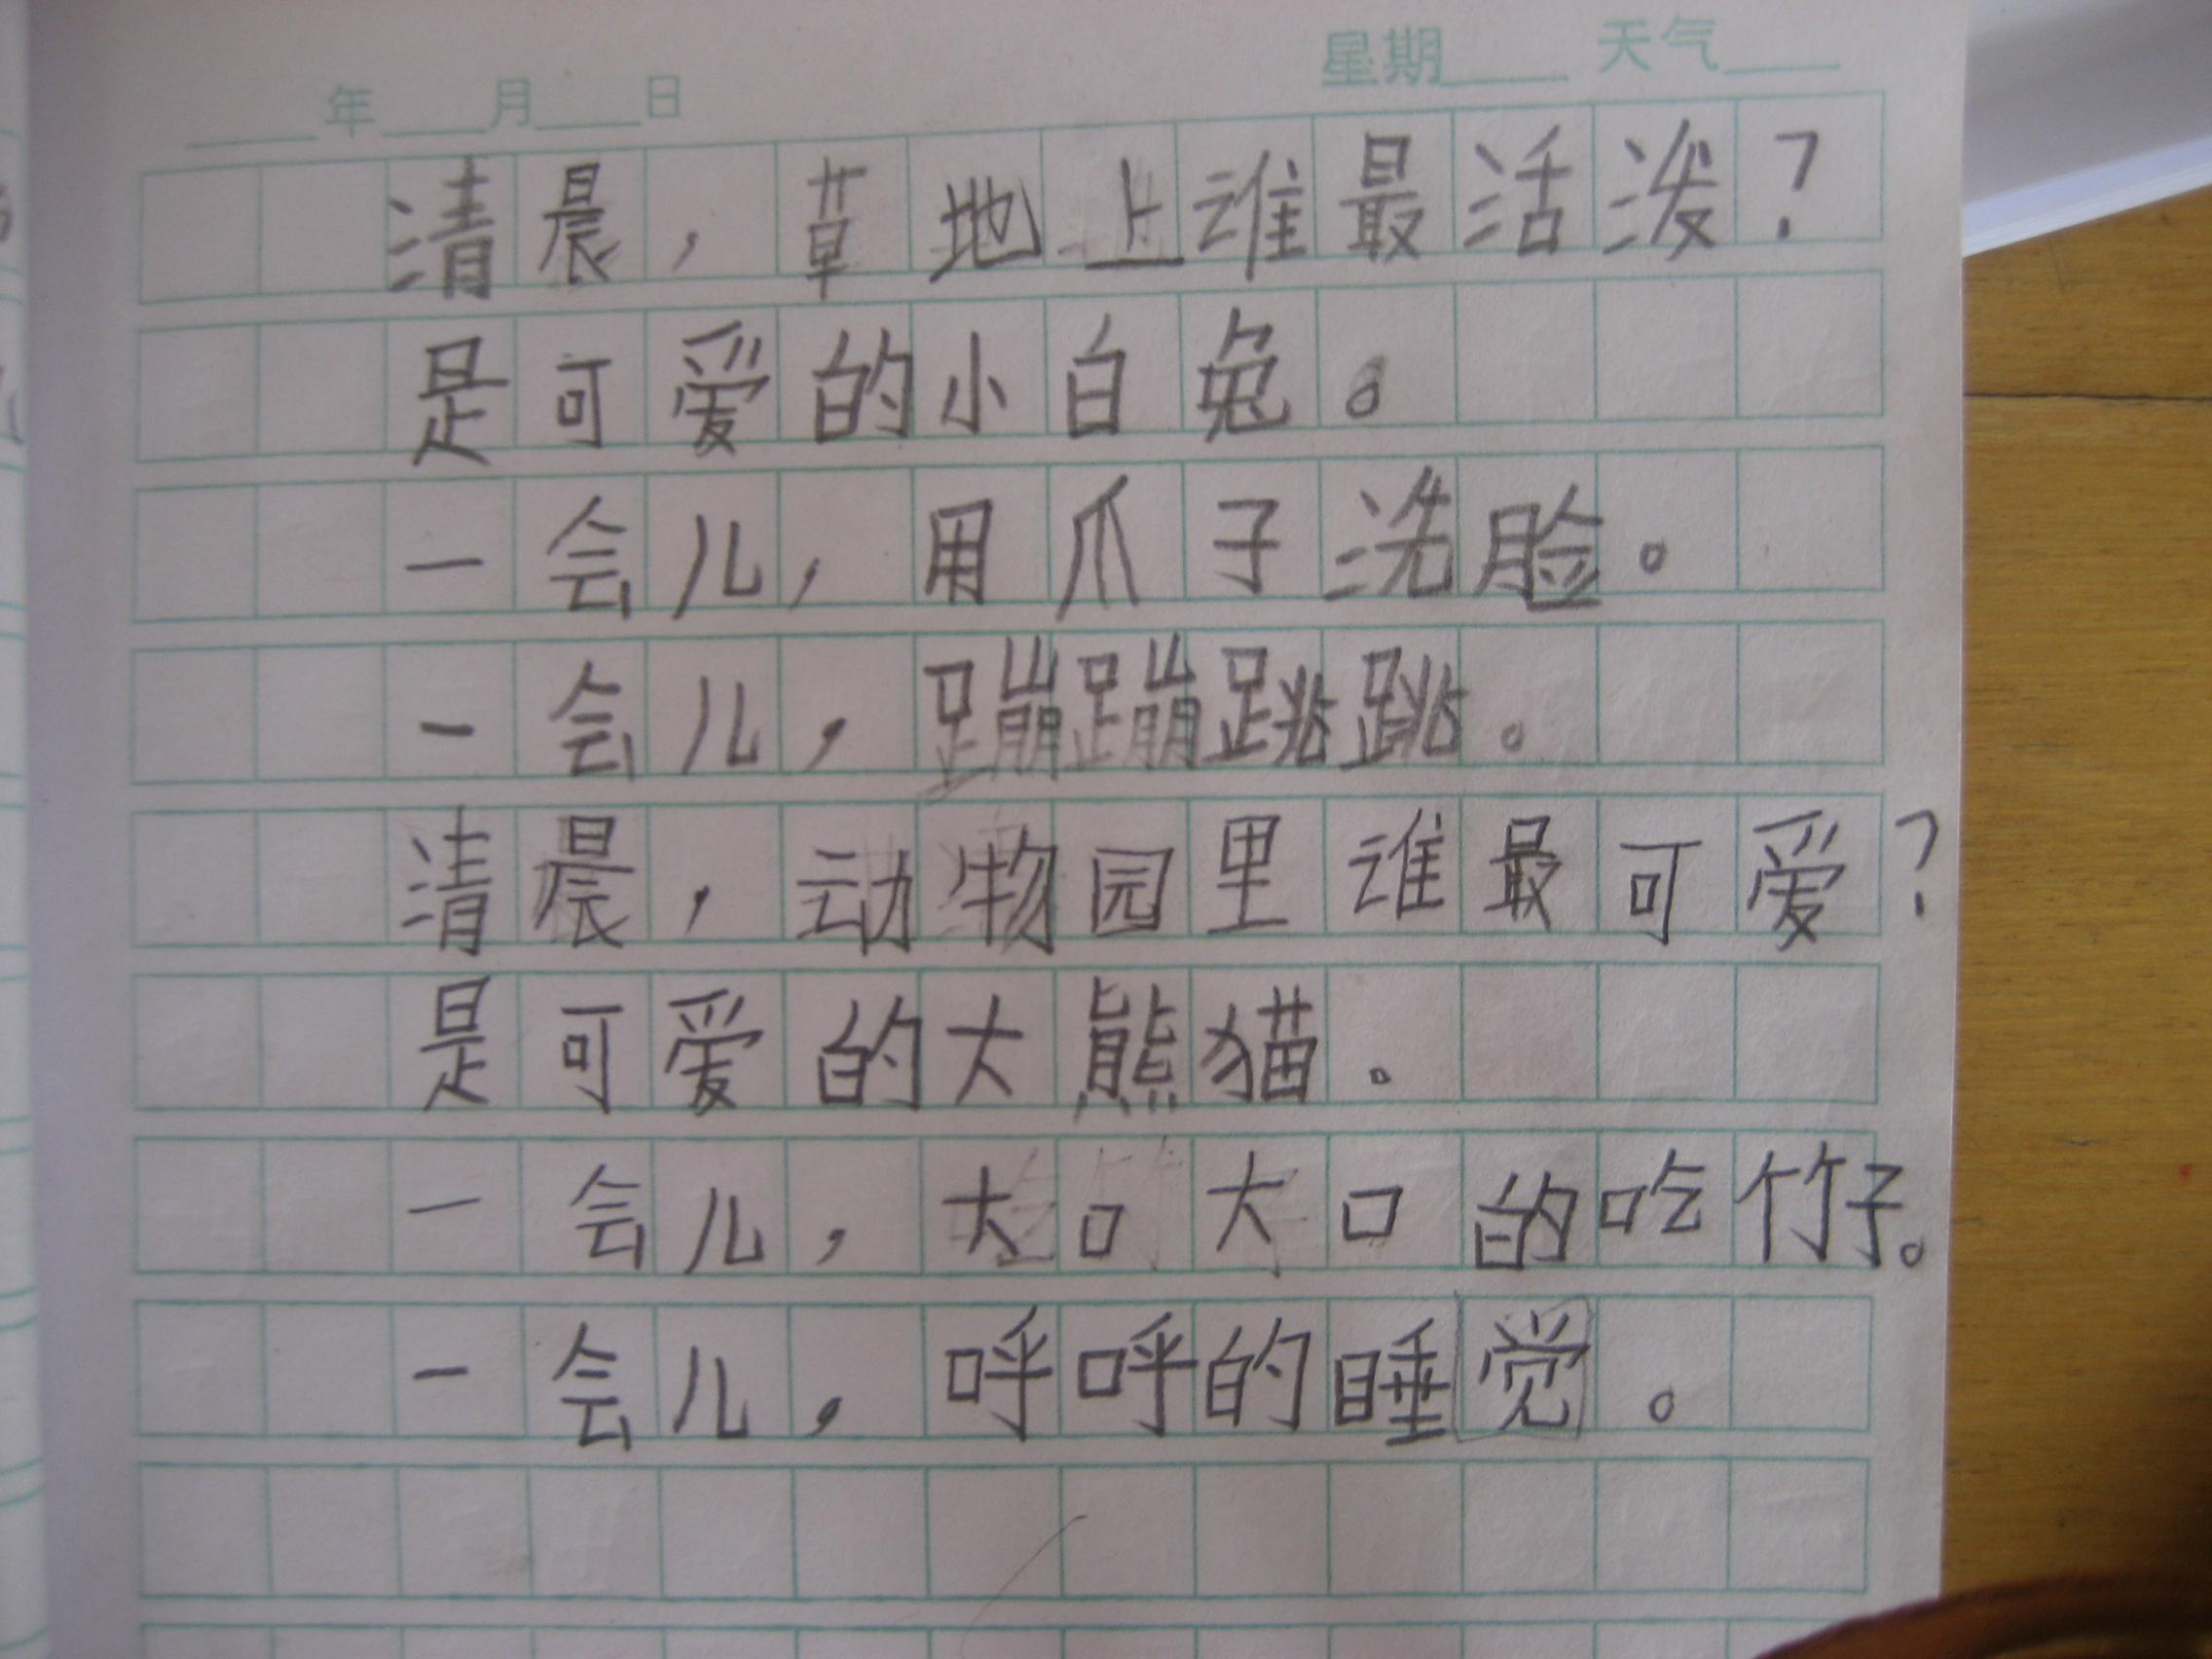 星期____ 天气____
____年____月____日
清晨，草地上谁最活泼？
是可爱的小白兔。
一会儿，用爪子洗脸。
一会儿，蹦蹦跳跳。
清晨，动物园里谁最可爱？
是可爱的大熊猫。
一会儿，大口大口的吃竹子。
一会儿，呼呼的睡觉。